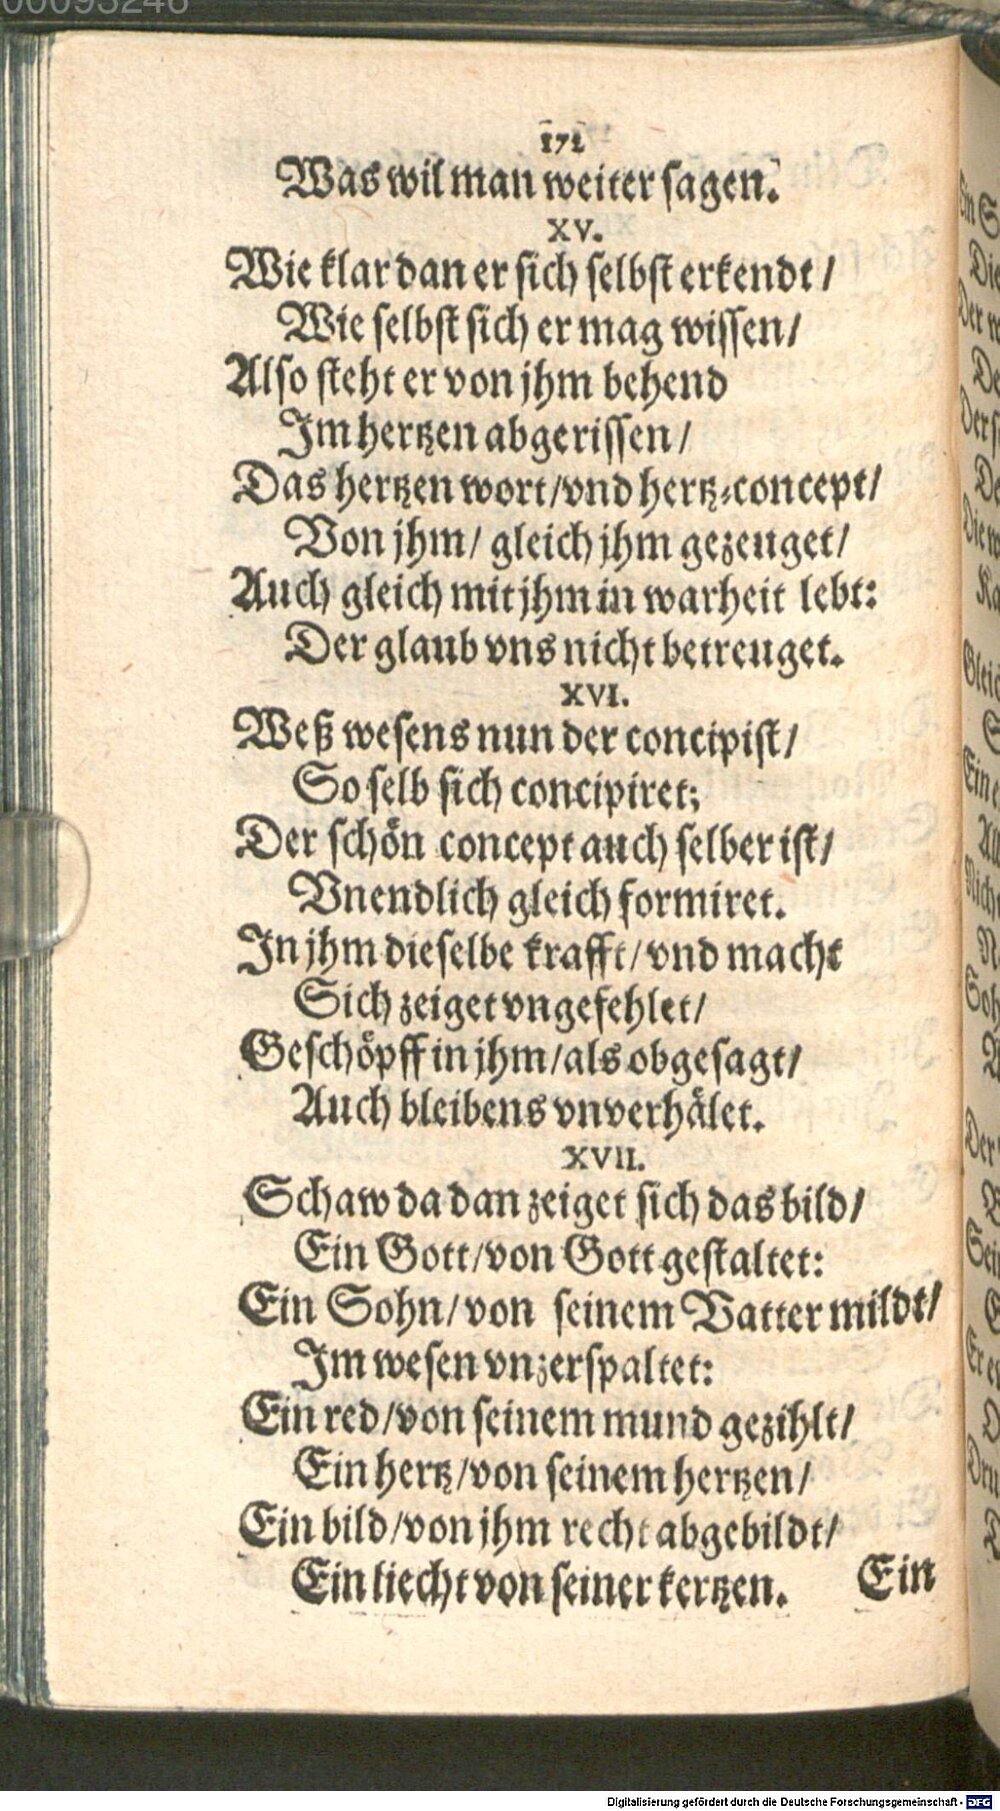 00093246
172
Was wil man weiter sagen.
XV.
Wie klar dan er sich selbst erkendt/
Wie selbst sich er mag wissen/
Also steht er von jhm behend
Im hertzen abgerissen/
Das hertzen wort/vnd hertz-concept/
Von jhm/ gleich jhm gezeuget/
Auch gleich mit jhm in warheit lebt:
Der glaub vns nicht betreuget.
XVI.
Weß wesens nun der concipist/
So selb sich concipiret;
Der schön concept auch selber ist/
Vnendlich gleich formiret.
In jhm dieselbe krafft/vnd macht
Sich zeiget vngefehlet/
Geschöpff in jhm/als obgesagt/
Auch bleibens vnverhälet.
XVII.
Schaw da dan zeiget sich das bild/
Ein Gott/von Gott gestaltet:
Ein Sohn/von seinem Vatter mildt/
Im wesen vnzerspaltet:
Ein red/von seinem mund gezihlt/
Ein hertz/von seinem hertzen/
Ein bild/von jhm recht abgebildt/
Ein liecht von seiner kertzen. Ein
Digitalisierung gefördert durch die Deutsche Forschungsgemeinschaft - DFG